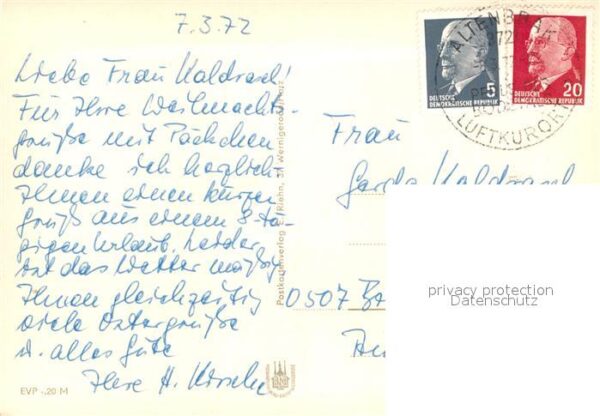 7.3.72
Liebe Frau Kaldrack!
Für Ihre Weihnachts-
grüße mit Päckchen
danke ich herzlich
Ihnen einen kurzen
Gruß aus einem 8-tä-
gigen Urlaub. Leider
ist das Wetter mäßig
Ihnen gleichzeitig
viele Ostergrüße
u. alles Gute
Ihre H.
EVP -,20 M
Postkartenverlag Riehn, 37 Wernigerode
ALTENBRAK
LUFTKURORT
5
DEUTSCHE
DEMOKRATISCHE REPUBLIK
20
DEUTSCHE
DEMOKRATISCHE REPUBLIK
Frau
Gerda Kaldrack
0507
privacy protection
Datenschutz